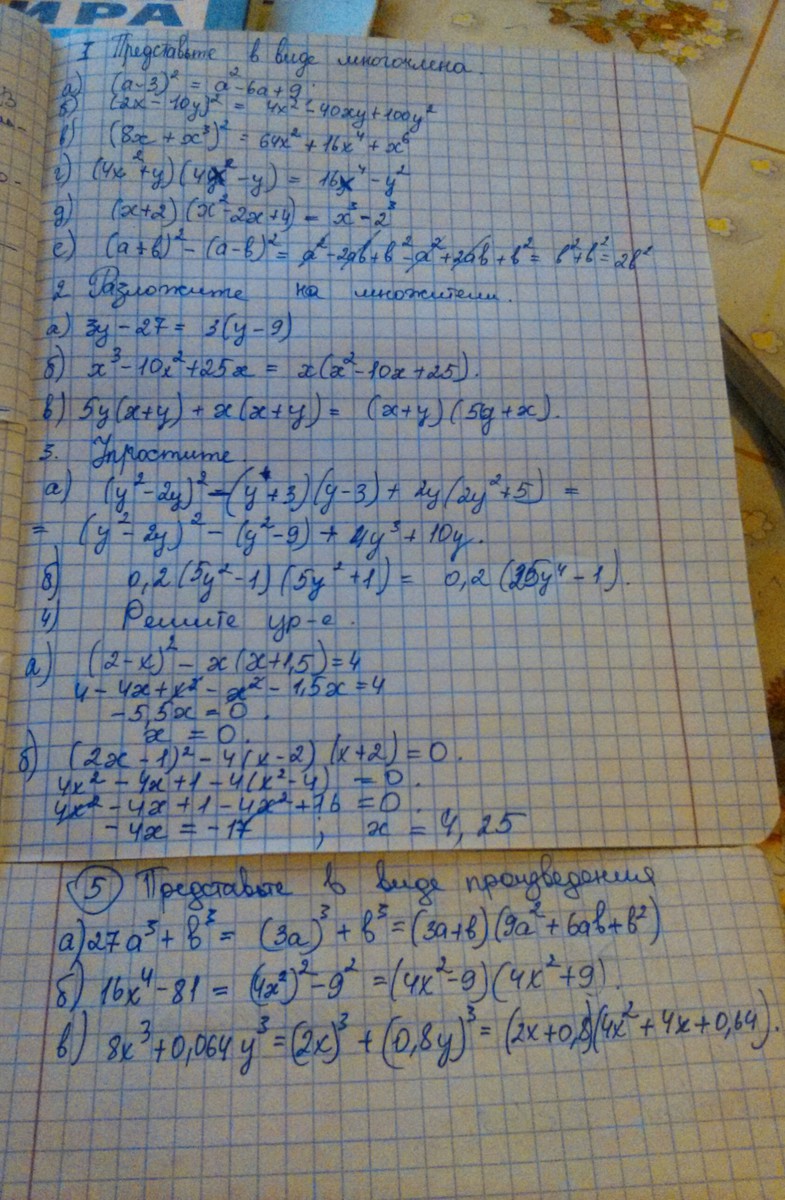 ИРА
1 Представьте в виде многочлена.
а) (a-3)² = a²-6a+9.
б) (2x-10y)² = 4x²-40xy+100y²
в) (8x+x³)² = 64x²+16x⁴+x⁶
г) (4x²+y)(4x²-y) = 16x⁴-y²
д) (x+2)(x²-2x+4) = x³-2³
е) (a+b)²-(a-b)² = a²-2ab+b²-a²+2ab+b² = b²+b²=2b²
2 Разложите на множители.
а) 3y-27 = 3(y-9)
б) x³-10x²+25x = x(x²-10x+25).
в) 5y(x+y)+x(x+y) = (x+y)(5y+x).
3. Упростите.
а) (y²-2y)²-(y+3)(y-3)+2y(2y²+5) =
= (y²-2y)²-(y²-9)+4y³+10y.
б) 0,2(5y²-1)(5y²+1) = 0,2(25y⁴-1).
4) Решите ур-е.
а) (2-x)²-x(x+1,5)=4
4-4x+x²-x²-1,5x=4
-5,5x=0.
x=0.
б) (2x-1)²-4(x-2)(x+2)=0.
4x²-4x+1-4(x²-4)=0.
4x²-4x+1-4x²+16=0.
-4x=-17 ; x=4,25
5 Представьте в виде произведения
а) 27a³+b³ = (3a)³+b³=(3a+b)(9a²+6ab+b²)
б) 16x⁴-81 = (4x²)²-9² =(4x²-9)(4x²+9).
в) 8x³+0,064y³=(2x)³+(0,8y)³=(2x+0,8)(4x²+4x+0,64).